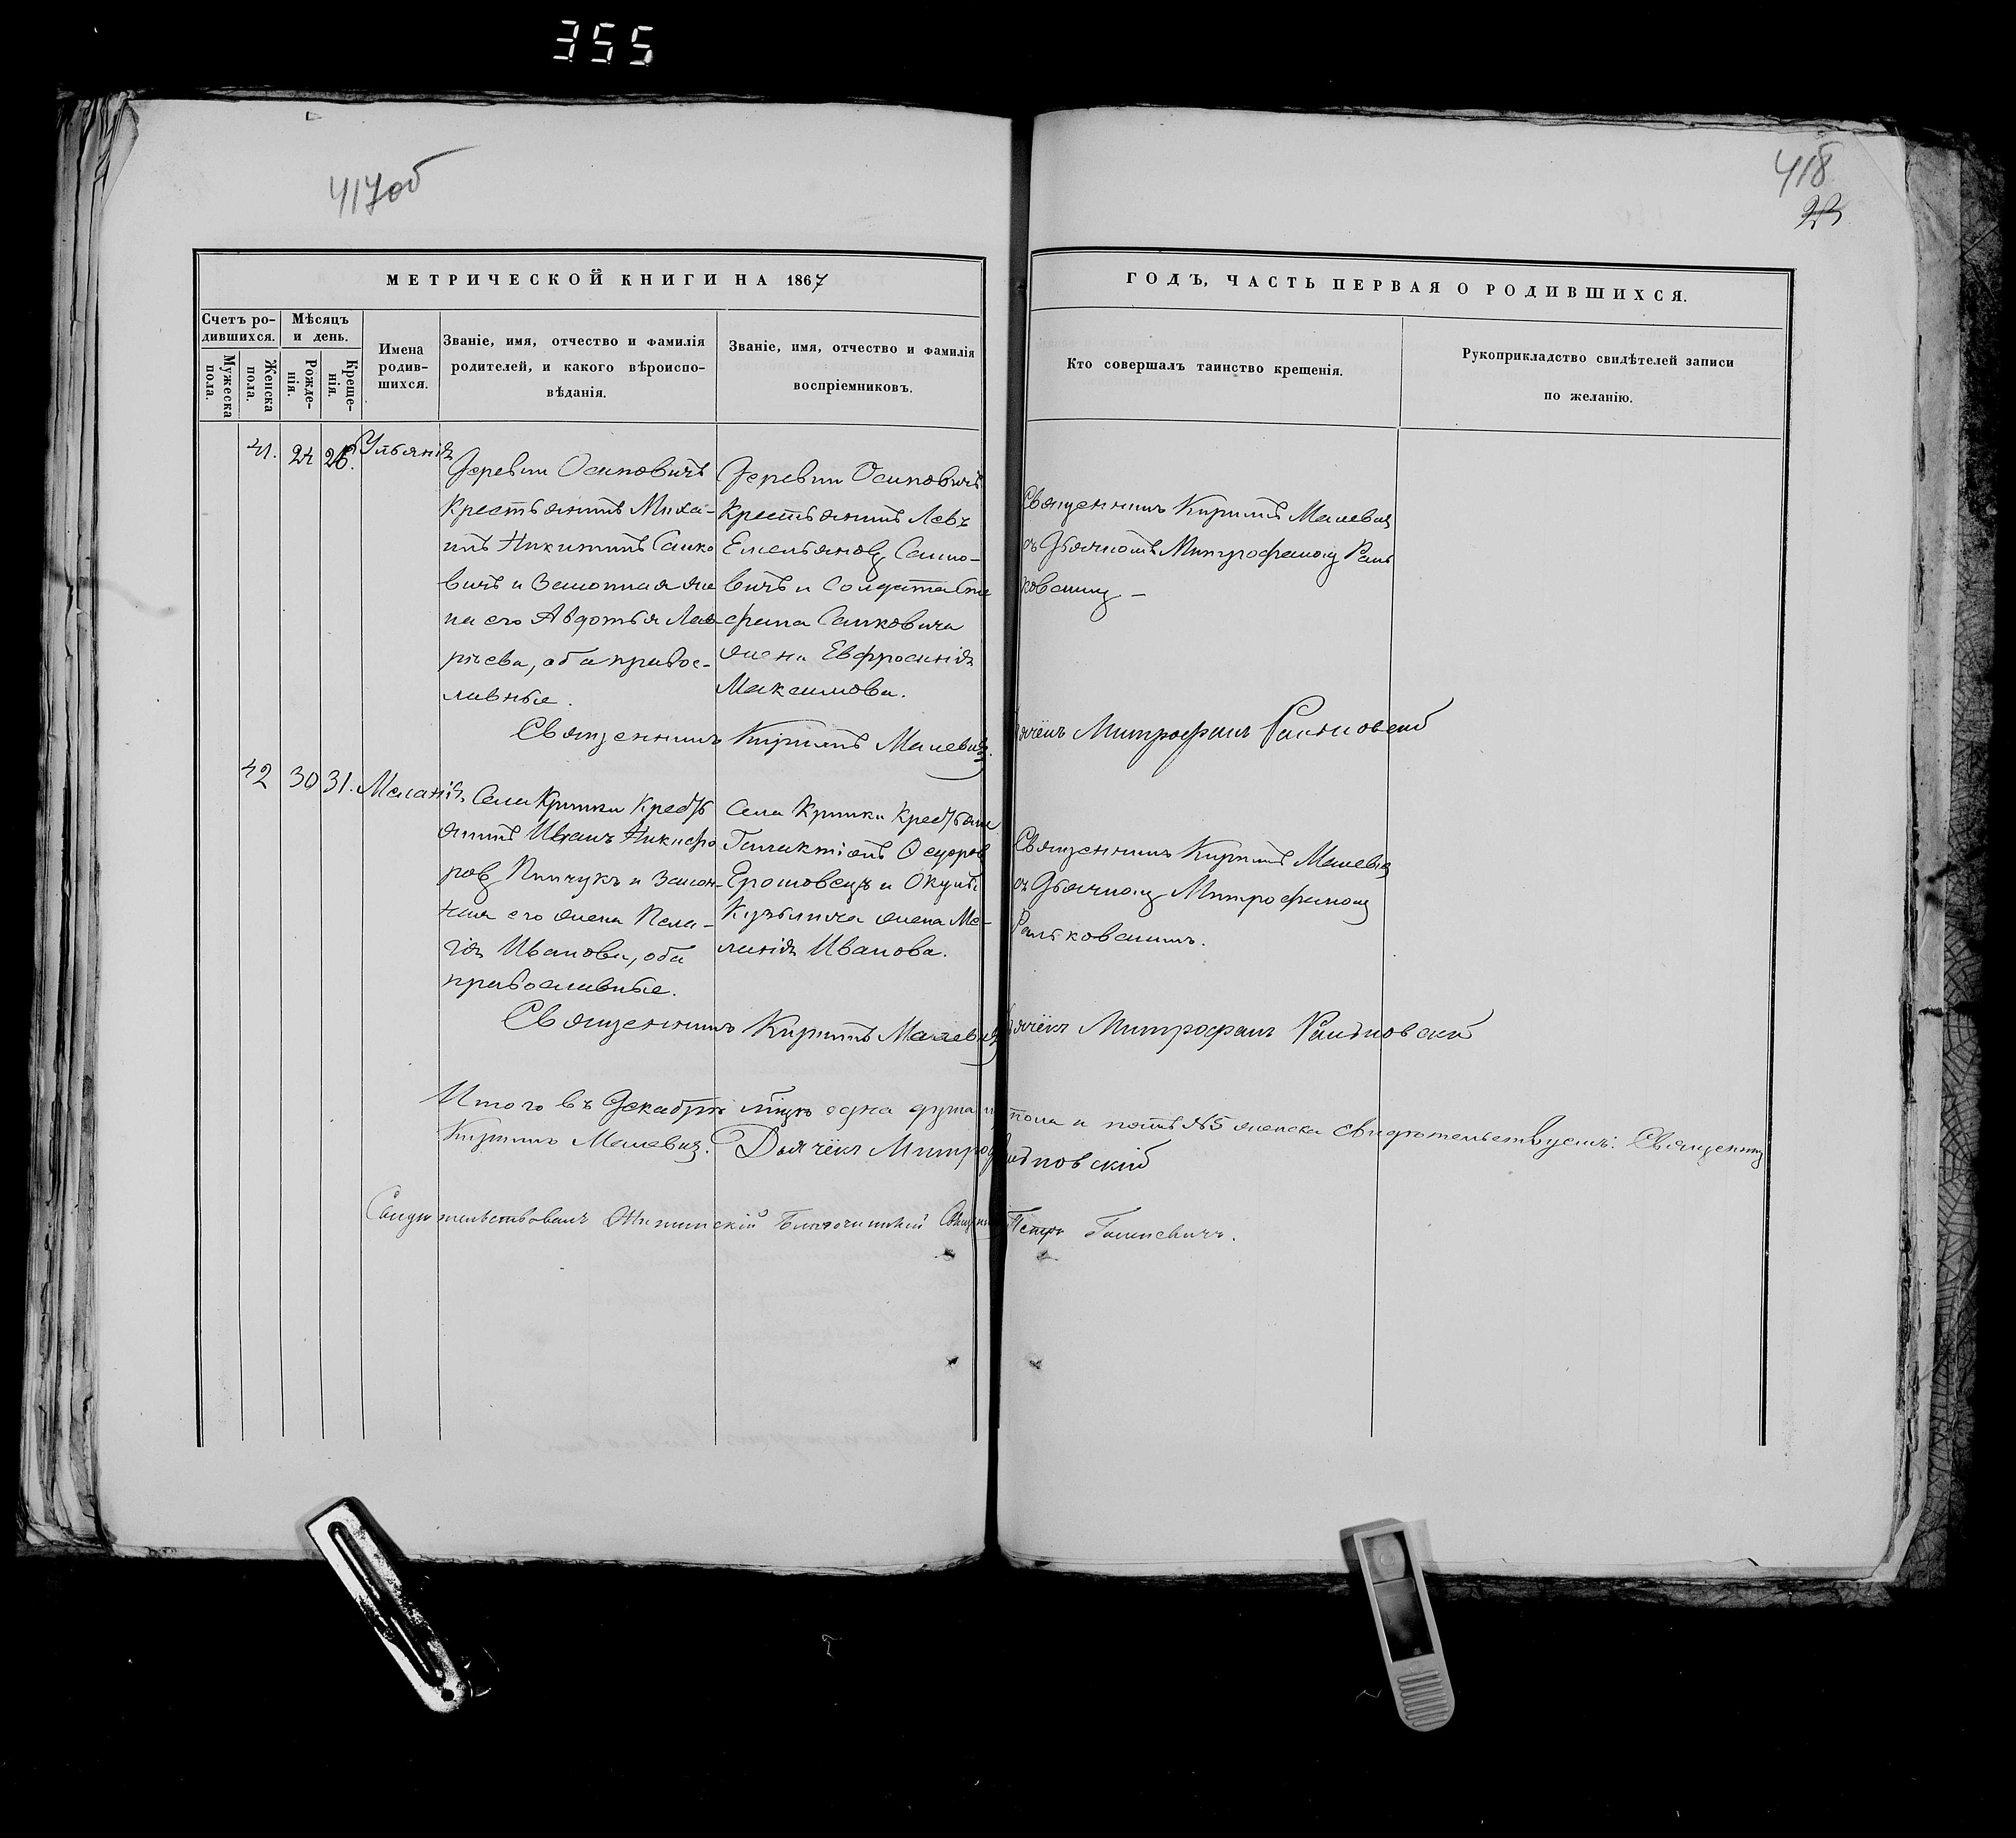 355
417об
418
МЕТРИЧЕСКОЙ КНИГИ НА 1867
ГОДЪ, ЧАСТЬ ПЕРВАЯ О РОДИВШИХСЯ.
Счетъ ро-
дившихся.
Мужеска
пола.
Женска
пола.
Мѣсяцъ
и день.
Рожде-
нія.
Креще-
нія.
Имена
родив-
шихся.
Званіе, имя, отчество и фамилія
родителей, и какого вѣроиспо-
вѣданія.
Званіе, имя, отчество и фамилія
воспріемниковъ.
Кто совершалъ таинство крещенія.
Рукоприкладство свидѣтелей записи
по желанію.
41. 24 26. Ульянія
Деревни Осиповичъ
Крестьянинъ Миха-
илъ Никитинъ Санко
вичъ и Законная же
на его Авдотья Лав-
рѣева, оба правос-
лавные.
Деревни Осиповичъ
Крестьянинъ Левъ
Емельяновъ Санко-
вичъ и Солдата
Санковича
жена Евфросинія
Максимова.
Священникъ Кириллъ Малевич
съ Дьячкомъ Митрофаномъ Раль
ковскимъ –
Священникъ Кириллъ Малевичъ.
Дьячёкъ Митрофанъ Ральковскій
42 30 31. Меланія
Села Кришки Кресть
янинъ Иванъ Никифо
ровъ Пинчукъ и Закон-
ная его жена Пела-
гія Иванова, оба
православные.
Села Кришки Крестьяне
Галактіонъ Ѳедоров
Ерошовецъ и
Кузьмича жена Ме-
ланія Иванова.
Священникъ Кириллъ Малевич
съ Дьячкомъ Митрофаномъ
Ральковскимъ.
Священникъ Кириллъ Малевичъ
Дьячёкъ Митрофанъ Ральковскій
Итого въ Декабрѣ мцѣ одна душа пола и женска свидѣтельствуемъ: Священникъ
Кириллъ Малевичъ. Дьячёкъ Митроф Ральковскій
Свидѣтельствовалъ Благочинный Священникъ Петръ